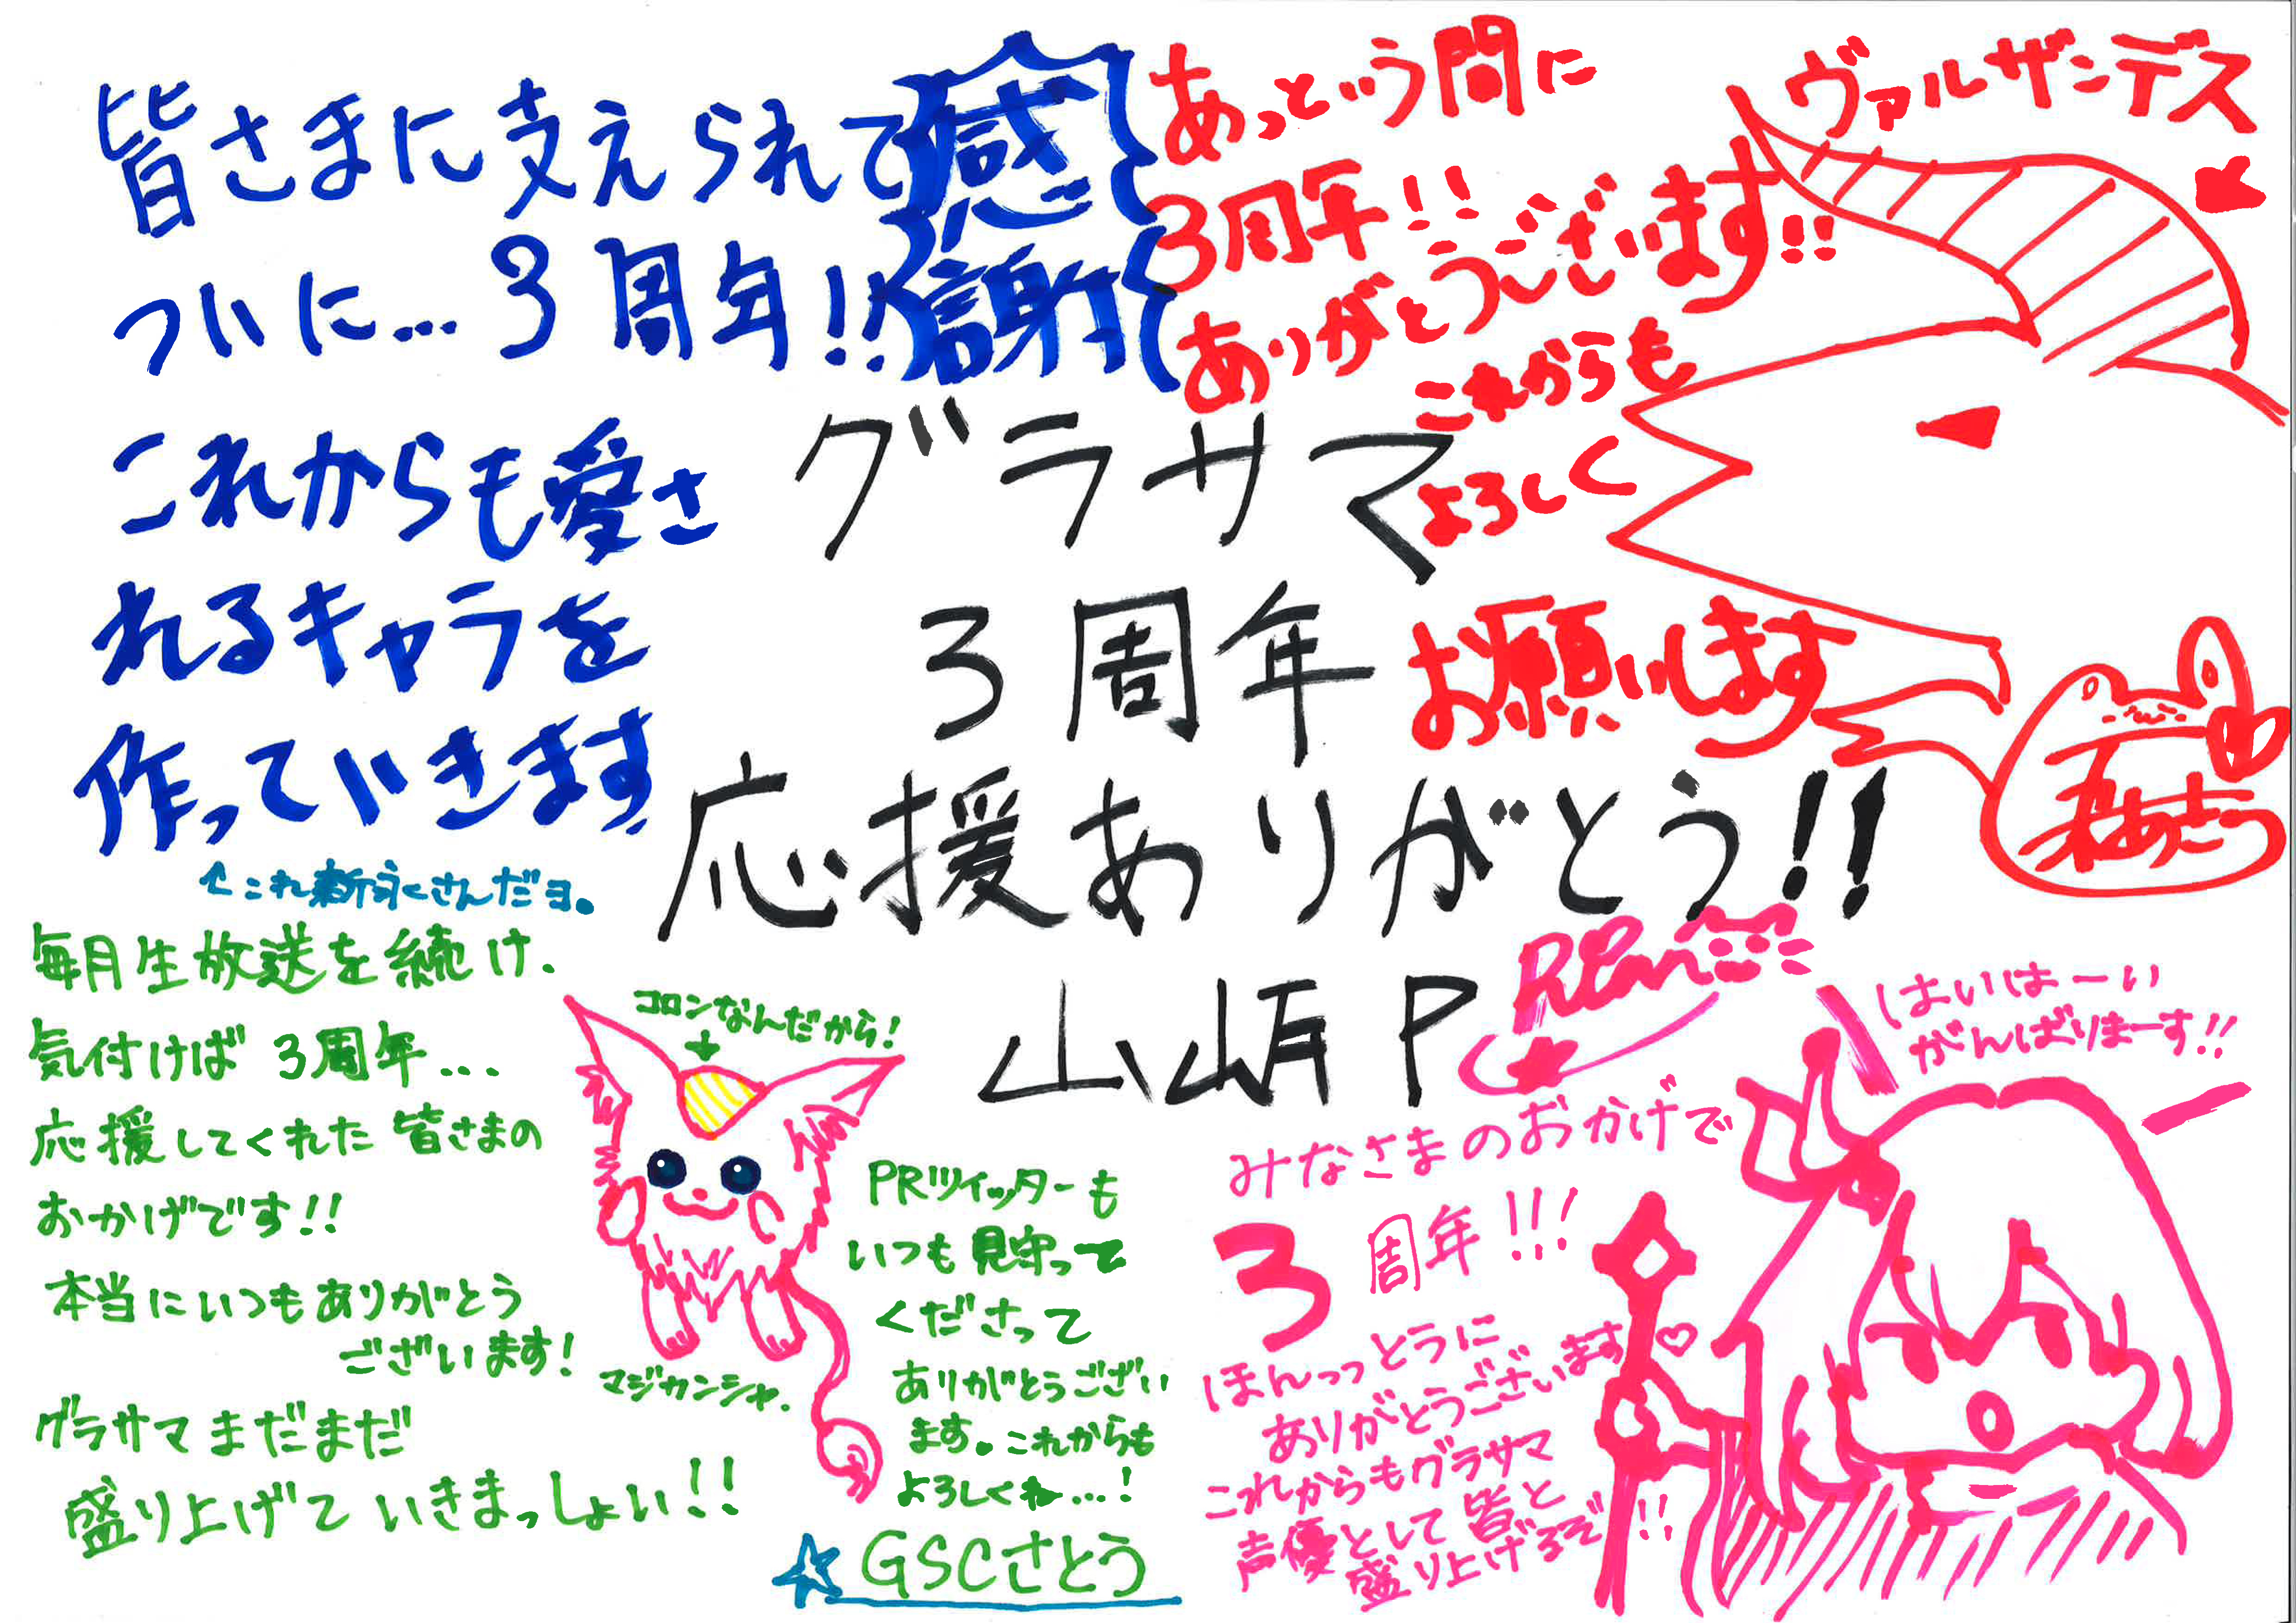 皆さまに支えられて
感謝
ついに…3周年!!
これからも愛さ
れるキャラを
作っていきます
←これ新永さんだヨ。
あっという間に
3周年!!
ありがとうございます!!
これからも
よろしく
お願いします
ヴァルザンデス
グラサマ
3周年
応援ありがとう!!
山崎P
毎月生放送を続け.
気付けば3周年...
応援してくれた皆さまの
おかげです!!
本当にいつもありがとう
ございます!
グラサマまだまだ
盛り上げていきまっしょい!!
コロンなんだから!
マジカンシャ.
PRツイッターも
いつも見守って
くださって
ありがとうござい
ます。これからも
よろしくね...!
GSCさとう
Ren
はいはーい
がんばりまーす!!
みなさまのおかげで
3周年!!!
ほんっっとうに
ありがとうございます♡
これからもグラサマ
声優として皆と
盛り上げるぞ!!